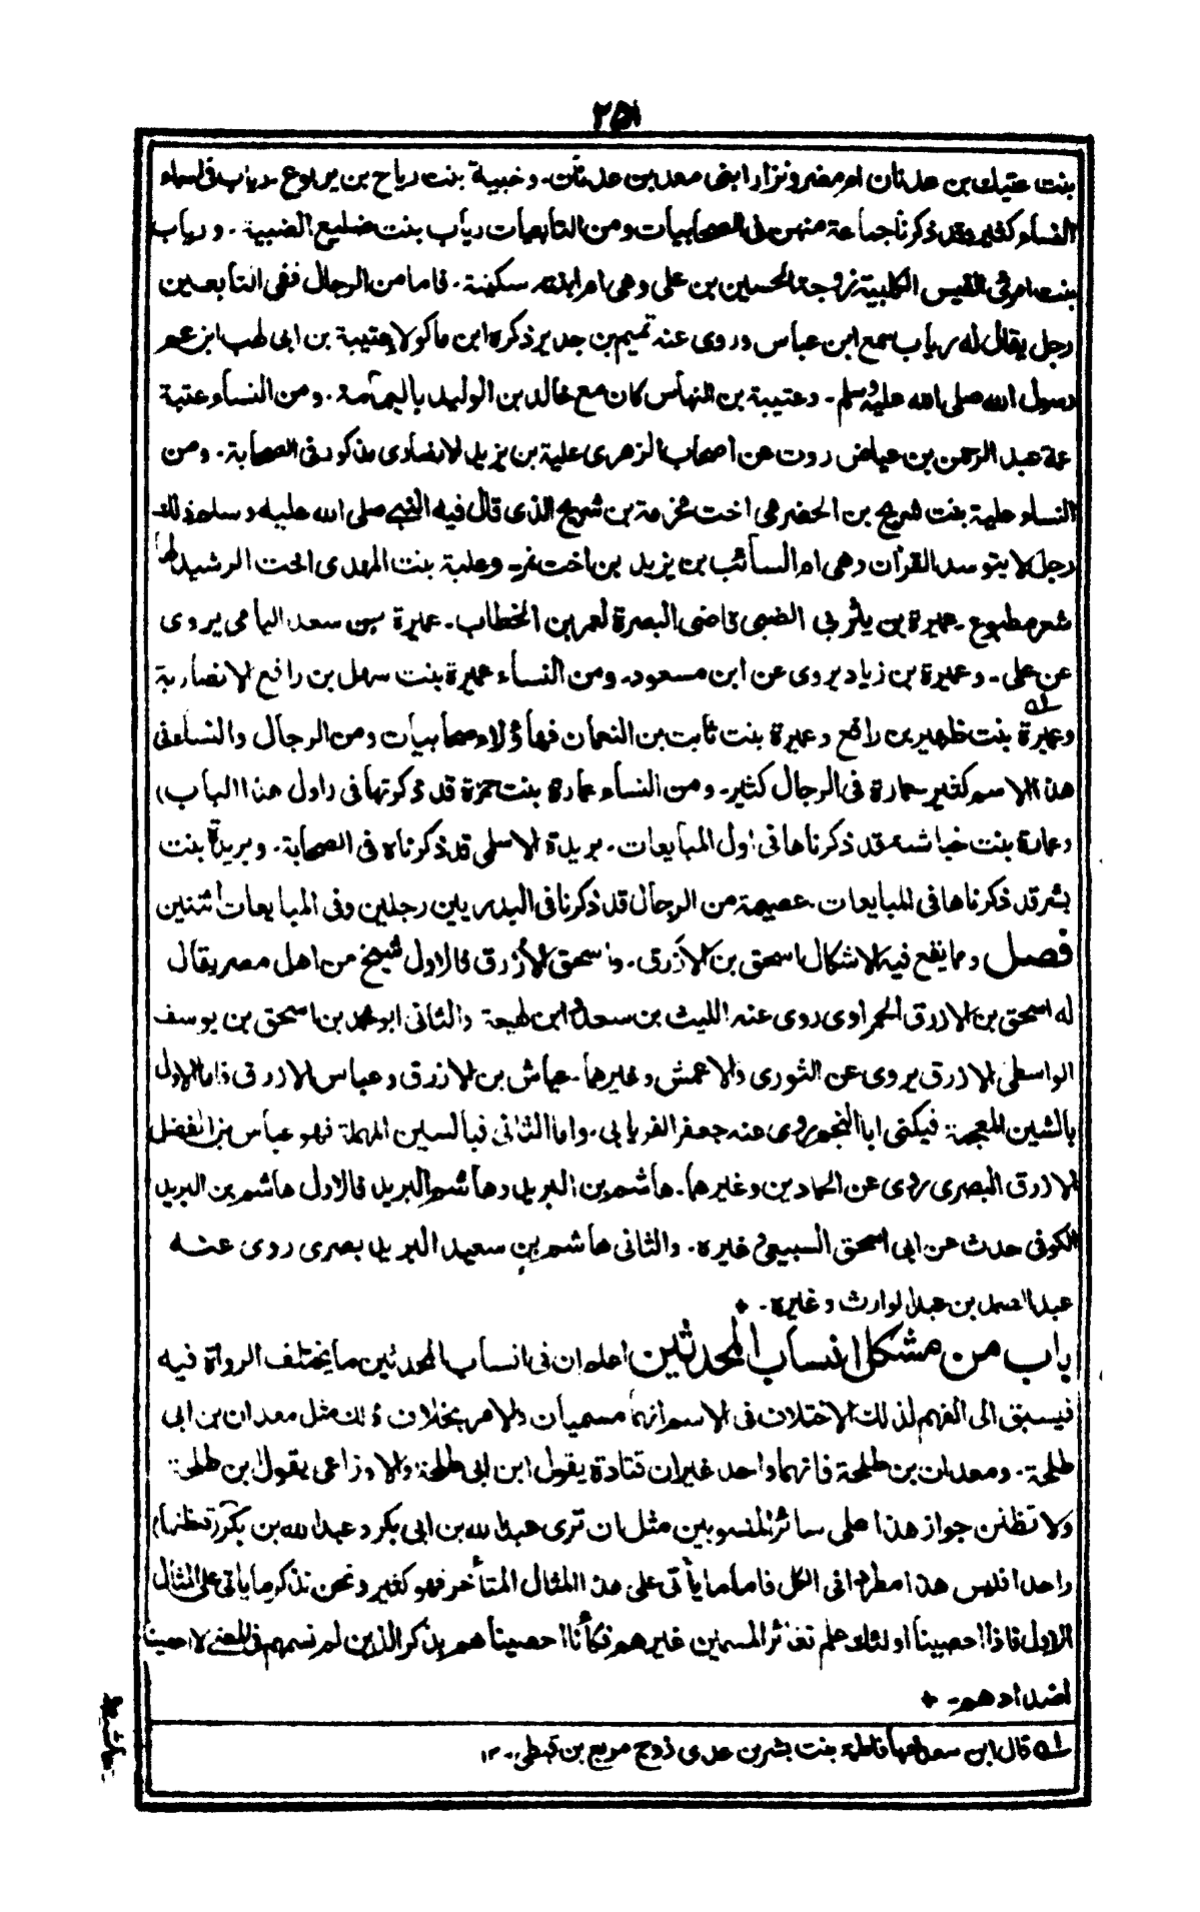 ٢٥١
بنت عتيك بن عدنان ام مضر ونزار ابنى معد بن عدنان. وخبية بنت رياح بن يربوع. رباب فى اسماء
النساء كثير وقد ذكرنا جماعة منهن فى الصحابيات ومن التابعيات رباب بنت ضليع الضبية. ورباب
بنت امرئ القيس الكلبية زوجة الحسين بن على وهى ام ابنته سكينة. فاما من الرجال ففى التابعين
رجل يقال له رباب سمع ابن عباس وروى عنه تميم بن جدير ذكره ابن ماكولا عتيبة بن ابى لهب ابن عم
رسول الله صلى الله عليه وسلم. وعتيبة بن النهاس كان مع خالد بن الوليد باليمامة. ومن النساء عتبة
عمة عبد الرحمن بن عياض روت عن اصحاب الزهرى علية بن يزيد الانصارى مذكور فى الصحابة. ومن
النساء علية بنت شريح بن الحضرمى اخت مخرمة بن شريح الذى قال فيه النبى صلى الله عليه وسلم ذلك
رجل لا يتوسد القرآن وهى ام السائب بن يزيد بن اخت نمر. وعلية بنت المهدى اخت الرشيد لها
شعر مطبوع. عميرة بن يثربى الضبى قاضى البصرة لعمر بن الخطاب. عميرة بن سعد اليامى يروى
عن على. وعميرة بن زياد يروى عن ابن مسعود. ومن النساء عميرة بنت سهل بن رافع الانصارية
وعميرة بنت ظهير بن رافع وعميرة بنت ثابت بن النعمان فهاؤلاء صحابيات ومن الرجال والنساء فى
هذا الاسم كثير. عمارة فى الرجال كثير. ومن النساء عمارة بنت حمزة قد ذكرتها فى (اول هذا الباب)
وعمارة بنت خباشة قد ذكرناها فى اول المبايعات. بريدة الاسلمى قد ذكرناه فى الصحابة. وبريدة بنت
بشر قد ذكرناها فى المبايعات. عصيمة من الرجال قد ذكرنا فى البدريين رجلين وفى المبايعات اثنتين
فصل ومما يقع فيه الاشكال اسحق بن الازرق. واسحق الازرق فالاول شيخ من اهل مصر يقال
له اسحق بن الازرق الحمراوى روى عنه الليث بن سعد وابن لهيعة والثانى ابو محمد بن اسحق بن يوسف
الواسطى الازرق يروى عن الثورى والاعمش وغيرهما. عياش بن الازرق وعباس الازرق فاما الاول
بالشين المعجمة فيكنى ابا النجم روى عنه جعفر الفريابى. واما الثانى فبالسين المهملة فهو عباس بن الفضل
الازرق البصرى روى عن الحمادين وغيرهما. هاشم بن البريد وهاشم البريد فالاول هاشم بن البريد
الكوفى حدث عن ابى اسحق السبيعى وغيره. والثانى هاشم بن سعيد البريد بصرى روى عنه
عبد الصمد بن عبد الوارث وغيره.
باب من مشكل انساب المحدثين اعلم ان فى انساب المحدثين ما يختلف الرواة فيه
فيسبق الى الفهم لذلك الاختلاف فى الاسم انهما مسميان والامر بخلاف ذلك مثل معدان بن ابى
طلحة. ومعدان بن طلحة فانهما واحد غير ان قتادة يقول ابن ابى طلحة والاوزاعى يقول ابن طلحة
ولا تظنن جواز هذا على سائر المنسوبين مثل ان ترى عبد الله بن ابى بكر وعبد الله بن بكر فتظنهما
واحدا فليس هذا مطردا فى الكل فاما ما يأتى على هذا المثال المتأخر فهو كثير ونحن نذكر ما ياتى على المثال
الاول فاذا احصينا اولئك علم تغائر المسمين غيرهم فكأننا احصيناهم بذكر الذين لم نسمهم فى المعنى لاحصينا
اضدادهم.
له قال ابن سعد امها فاطمة بنت بشر بن عدى زوج مربع بن قيظى. ١٢